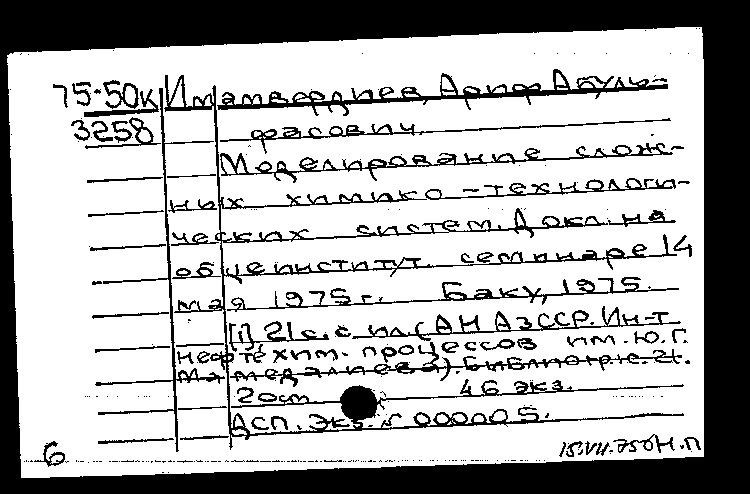 75-50к Имамвердиев, Ариф Абуль-
3258 фасович.
Моделирование слож-
ных химико-технологи-
ческих систем. Докл. на
общеинститут. семинаре 14
мая 1975 г. Баку, 1975.
[1], 21 с. с ил. (АН АзССР. Ин-т
нефтехим. процессов им. Ю.Г.
Мамедалиева). Библиогр.: с. 21.
20 см. 46 экз.
ДСП. Экз. № 000005.
6 15.VII.75